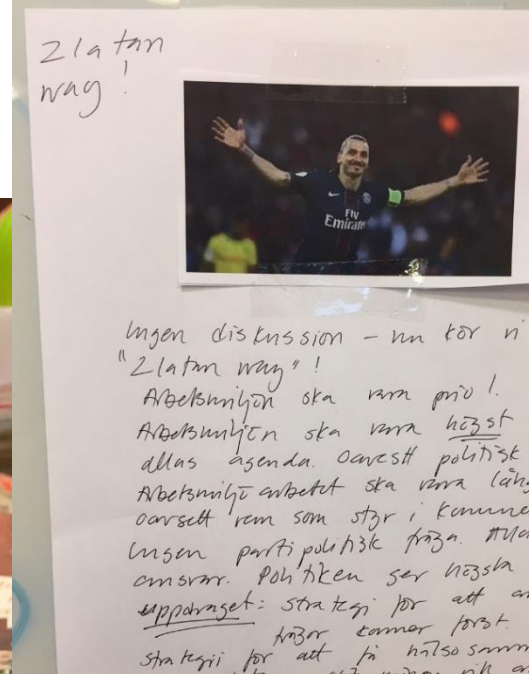 Zlatan
way!
Fly
Emirate
Ingen diskussion - nu kör vi
"Zlatan way"!
Arbetsmiljön ska vara prio 1.
Arbetsmiljön ska vara högst
allas agenda. Oavsett politisk
Arbetsmiljöarbetet ska vara lång
Oavsett vem som styr i kommune
Ingen partipolitisk fråga. Alla
ansvar. Politiken ger högsta
uppdraget: strategi för att
frågor kommer först.
strategi för att få hälsosamm